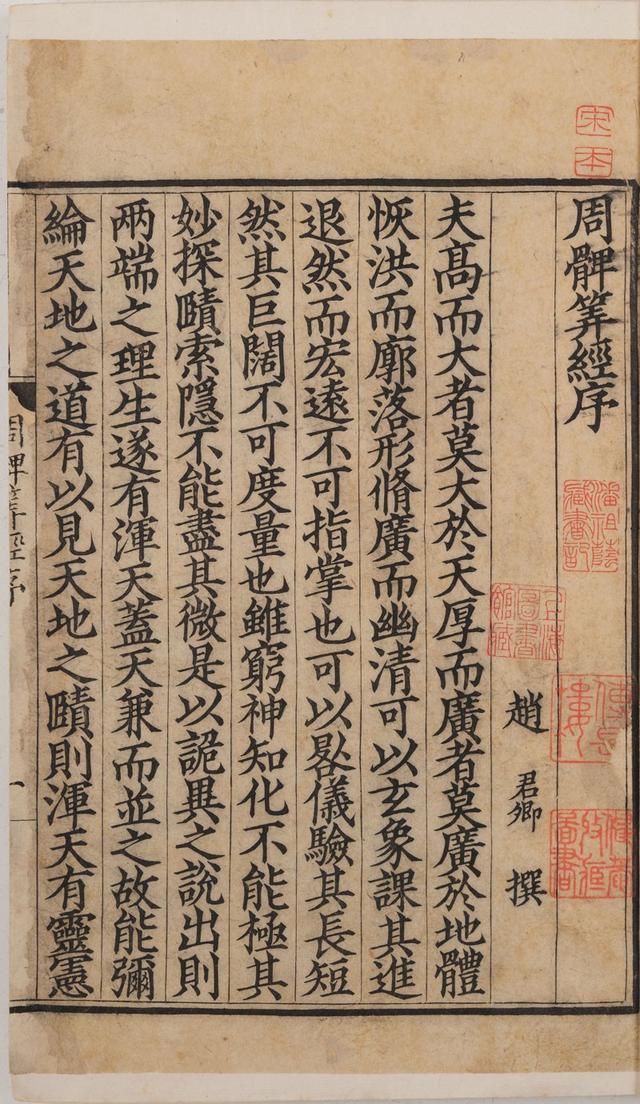 周髀筭經序
趙君卿撰
夫髙而大者莫大於天厚而廣者莫廣於地體
恢洪而廓落形脩廣而幽清可以玄象課其進
退然而宏遠不可指掌也可以晷儀驗其長短
然其巨闊不可度量也雖窮神知化不能極其
妙探賾索隱不能盡其微是以詭異之說出則
兩端之理生遂有渾天蓋天兼而並之故能彌
綸天地之道有以見天地之賾則渾天有靈憲
周髀筭經序
宋本
潘祖蔭藏書記
上海圖書館藏